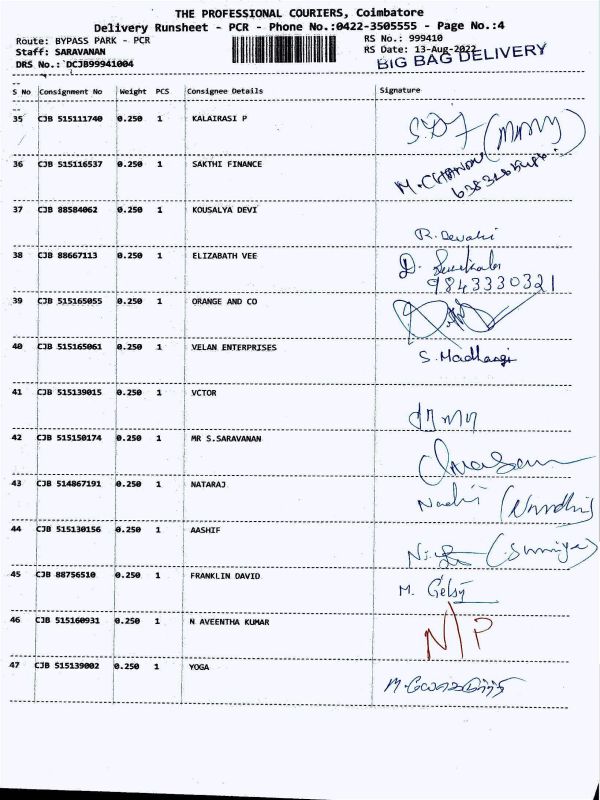 THE PROFESSIONAL COURIERS, Coimbatore
Delivery Runsheet - PCR - Phone No.:0422-3505555 - Page No.:4
Route: BYPASS PARK - PCR RS No.: 999410
Staff: SARAVANAN RS Date: 13-Aug-2022
DRS No.: DCJB99941004 BIG BAG DELIVERY
S No Consignment No Weight PCS Consignee Details Signature
35 CJB 515111740 0.250 1 KALAIRASI P
36 CJB 515116537 0.250 1 SAKTHI FINANCE
37 CJB 88584062 0.250 1 KOUSALYA DEVI
R. Devaki
38 CJB 88667113 0.250 1 ELIZABATH VEE
9843330321
39 CJB 515165055 0.250 1 ORANGE AND CO
40 CJB 515165061 0.250 1 VELAN ENTERPRISES
S. Madhangi
41 CJB 515139015 0.250 1 VCTOR
42 CJB 515150174 0.250 1 MR S.SARAVANAN
43 CJB 514867191 0.250 1 NATARAJ
44 CJB 515130156 0.250 1 AASHIF
(Sumiya)
45 CJB 88756510 0.250 1 FRANKLIN DAVID
M. Gelsy
46 CJB 515160931 0.250 1 N AVEENTHA KUMAR
N/P
47 CJB 515139002 0.250 1 YOGA